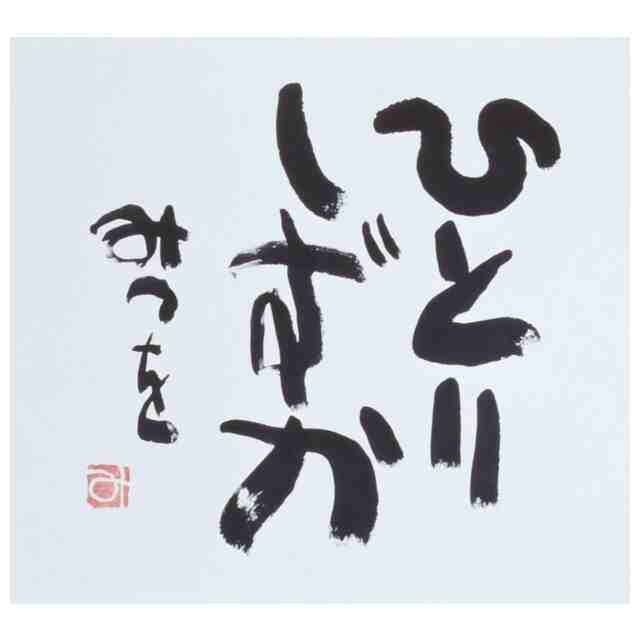 ひとり
しずか
みつを
み